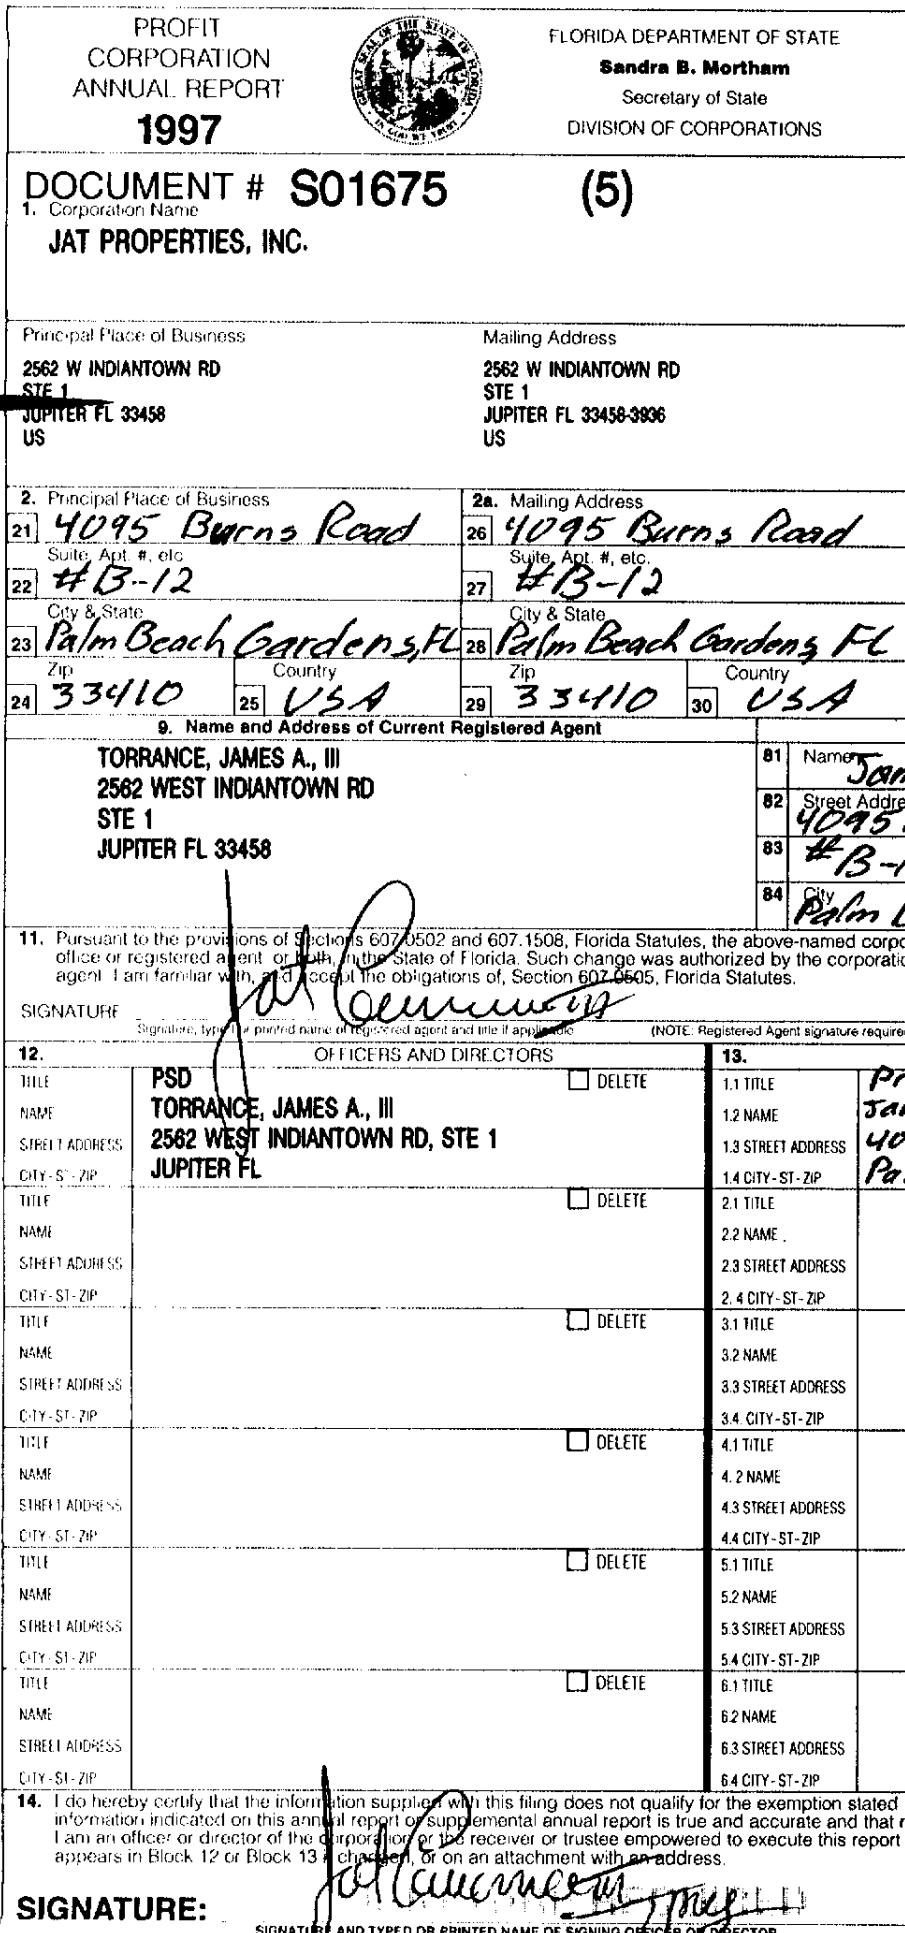 PROFIT
CORPORATION
ANNUAL REPORT
1997
GREAT SEAL OF THE STATE OF FLORIDA
IN GOD WE TRUST
FLORIDA DEPARTMENT OF STATE
Sandra B. Mortham
Secretary of State
DIVISION OF CORPORATIONS
DOCUMENT # S01675 (5)
1. Corporation Name
JAT PROPERTIES, INC.
Principal Place of Business
2562 W INDIANTOWN RD
STE 1
JUPITER FL 33458
US
Mailing Address
2562 W INDIANTOWN RD
STE 1
JUPITER FL 33458-3936
US
2. Principal Place of Business
21 4095 Burns Road
Suite, Apt. #, etc
22 #B-12
City & State
23 Palm Beach Gardens, FL
Zip
24 33410
Country
25 USA
2a. Mailing Address
26 4095 Burns Road
Suite, Apt. #, etc.
27 #B-12
City & State
28 Palm Beach Gardens, FL
Zip
29 33410
Country
30 USA
9. Name and Address of Current Registered Agent
TORRANCE, JAMES A., III
2562 WEST INDIANTOWN RD
STE 1
JUPITER FL 33458
81 Name Jam
82 Street Addre
4095
83 #B-1
84 City
Palm
11. Pursuant to the provisions of Sections 607.0502 and 607.1508, Florida Statutes, the above-named corpo
office or registered agent, or both, in the State of Florida. Such change was authorized by the corporatio
agent. I am familiar with, and accept the obligations of, Section 607.0505, Florida Statutes.
SIGNATURE
Signature, typed or printed name of registered agent and title if applicable
(NOTE: Registered Agent signature require
12. OFFICERS AND DIRECTORS
13.
TITLE PSD DELETE
NAME TORRANCE, JAMES A., III
STREET ADDRESS 2562 WEST INDIANTOWN RD, STE 1
CITY-ST-ZIP JUPITER FL
1.1 TITLE Pr
1.2 NAME Jam
1.3 STREET ADDRESS 40
1.4 CITY-ST-ZIP Pa
TITLE DELETE
NAME
STREET ADDRESS
CITY-ST-ZIP
2.1 TITLE
2.2 NAME
2.3 STREET ADDRESS
2.4 CITY-ST-ZIP
TITLE DELETE
NAME
STREET ADDRESS
CITY-ST-ZIP
3.1 TITLE
3.2 NAME
3.3 STREET ADDRESS
3.4. CITY-ST-ZIP
TITLE DELETE
NAME
STREET ADDRESS
CITY-ST-ZIP
4.1 TITLE
4.2 NAME
4.3 STREET ADDRESS
4.4 CITY-ST-ZIP
TITLE DELETE
NAME
STREET ADDRESS
CITY-ST-ZIP
5.1 TITLE
5.2 NAME
5.3 STREET ADDRESS
5.4 CITY-ST-ZIP
TITLE DELETE
NAME
STREET ADDRESS
CITY-ST-ZIP
6.1 TITLE
6.2 NAME
6.3 STREET ADDRESS
6.4 CITY-ST-ZIP
14. I do hereby certify that the information supplied with this filing does not qualify for the exemption stated
information indicated on this annual report or supplemental annual report is true and accurate and that
I am an officer or director of the corporation or the receiver or trustee empowered to execute this report
appears in Block 12 or Block 13 if changed, or on an attachment with an address.
SIGNATURE:
SIGNATURE AND TYPED OR PRINTED NAME OF SIGNING OFFICER OR DIRECTOR